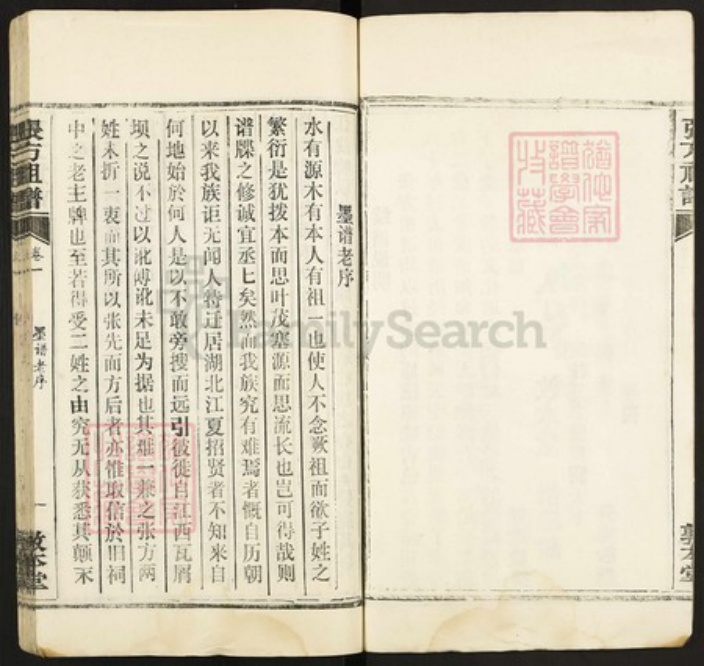 墨谱老序
水有源木有本人有祖一也使人不念厥祖而欲子姓之
繁衍是犹拨本而思叶茂塞源而思流长也岂可得哉则
谱牒之修诚宜丞七矣然而我族究有难焉者慨自历朝
以来我族讵无闻人特迁居湖北江夏招贤者不知来自
何地始於何人是以不敢旁搜而远引彼徙自江西瓦屑
坝之说不过以讹传讹未足为据也其难一兼之张方两
姓未折一衷而其所以张先而方后者亦惟取信於旧祠
中之老主牌也至若得受二姓之由究无从获悉其颠末
張方祖譜
卷一
墨谱老序
一
敦本堂
張方祖譜
敦本堂
譜學會
收藏
FamilySearch